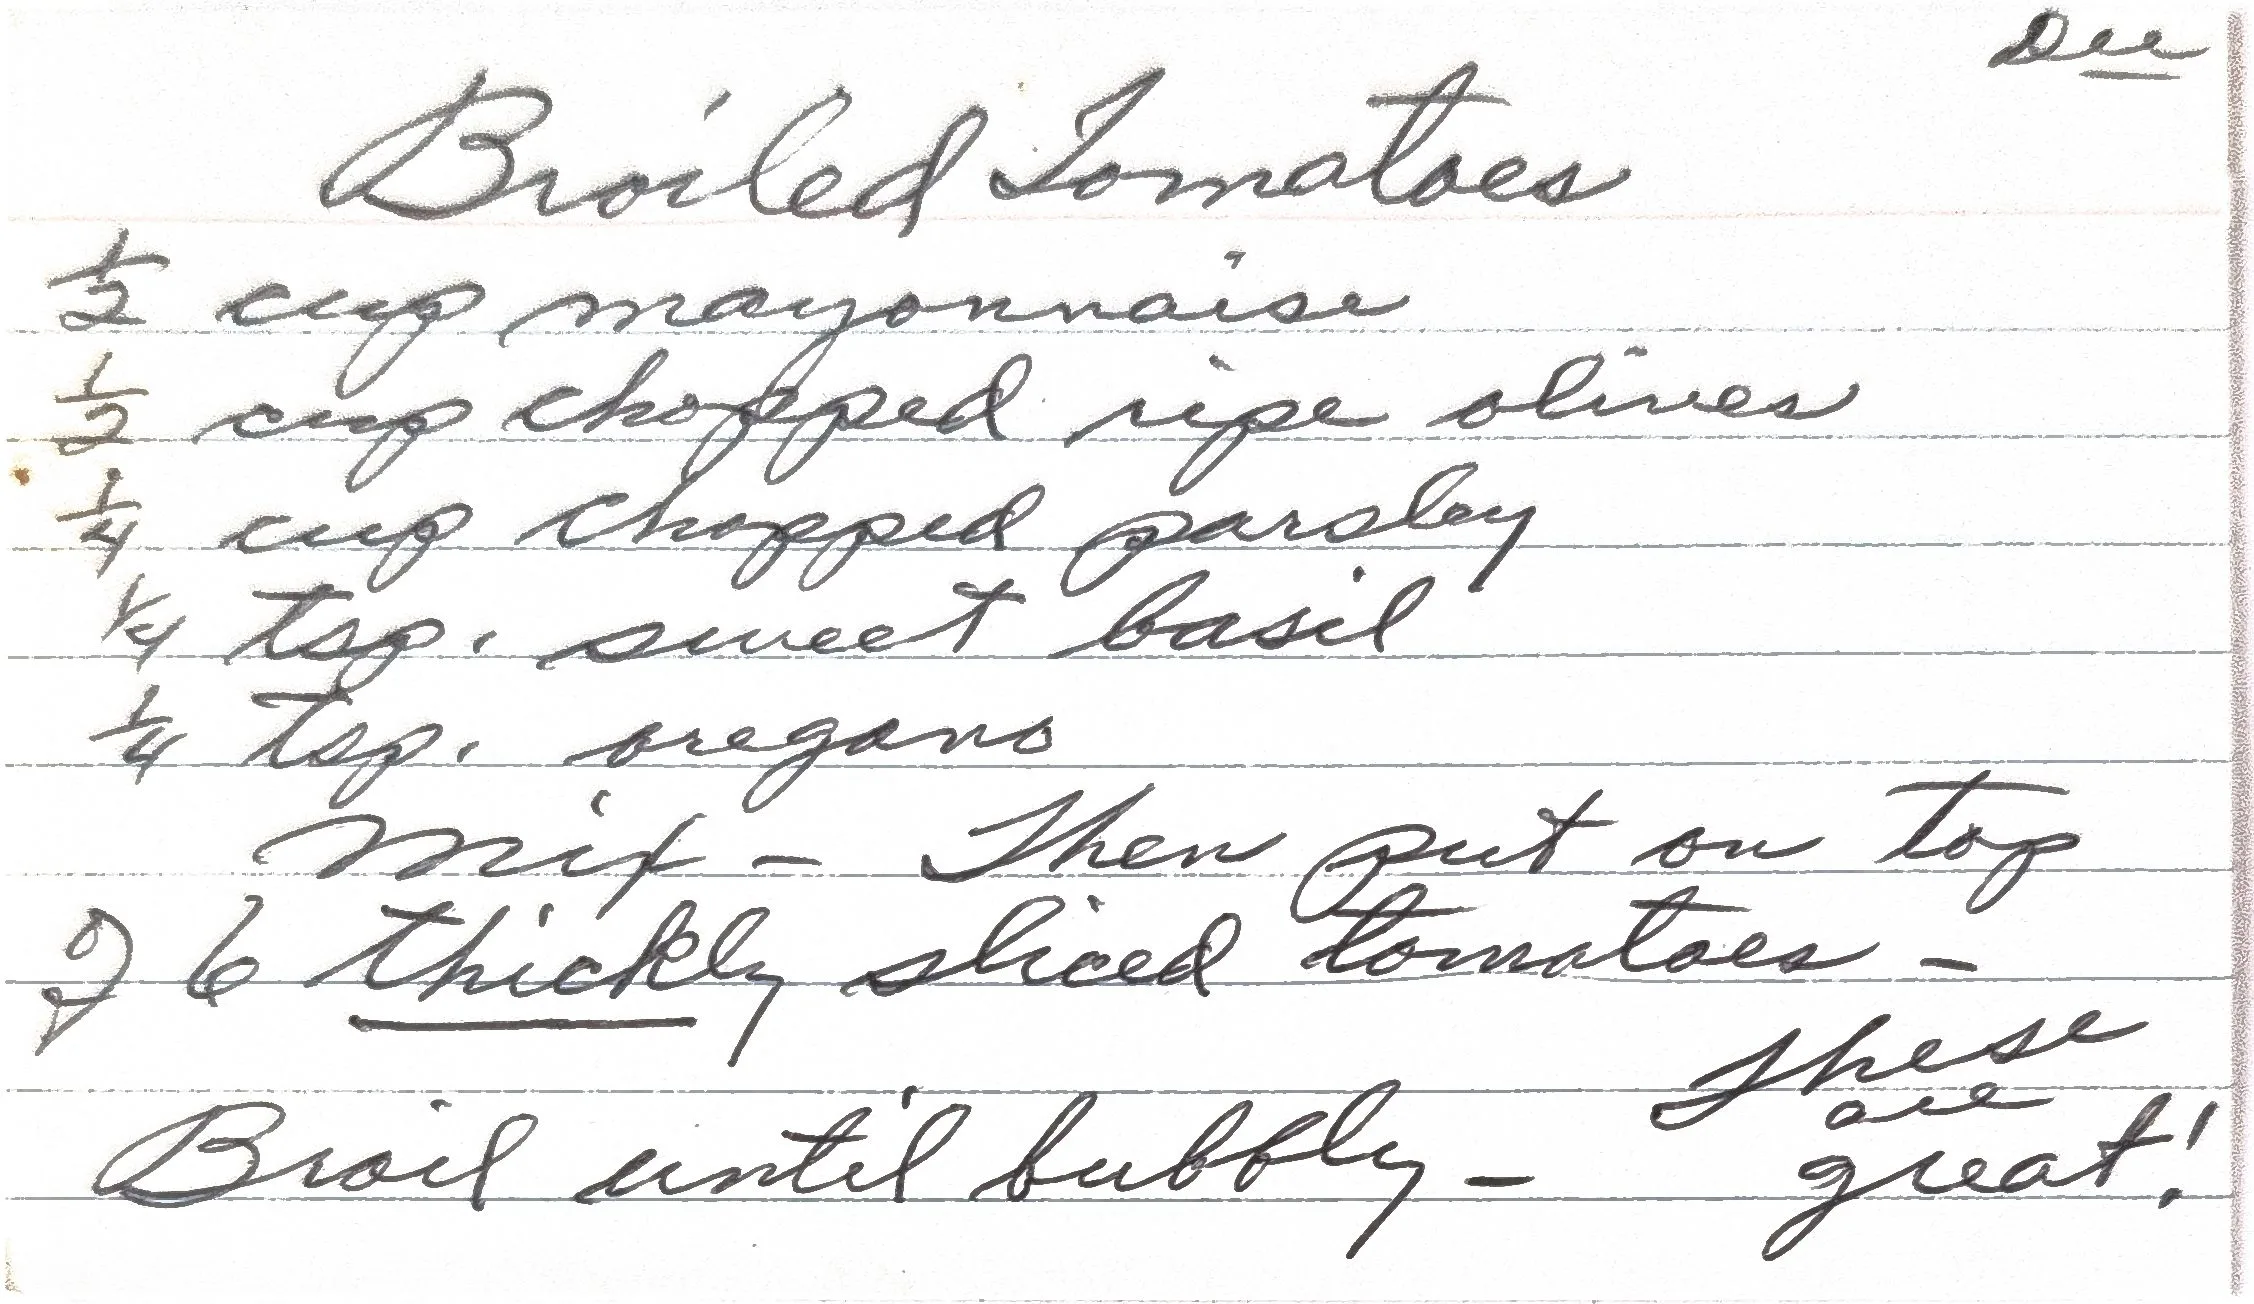 Dee
Broiled Tomatoes
1/2 cup mayonnaise
1/2 cup chopped ripe olives
1/4 cup chopped parsley
1/4 tsp. sweet basil
1/4 tsp. oregano
Mix - Then put on top
of 6 thickly sliced tomatoes -
Broil until bubbly -
These
are
great!